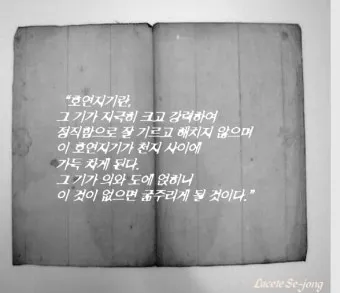 “호연지기란,
그 기가 지극히 크고 강력하여
정직함으로 잘 기르고 해치지 않으며
이 호연지기가 천지 사이에
가득 차게 된다.
그 기가 의와 도에 얹히니
이 것이 없으면 굶주리게 될 것이다.”
Lacete Se-jong